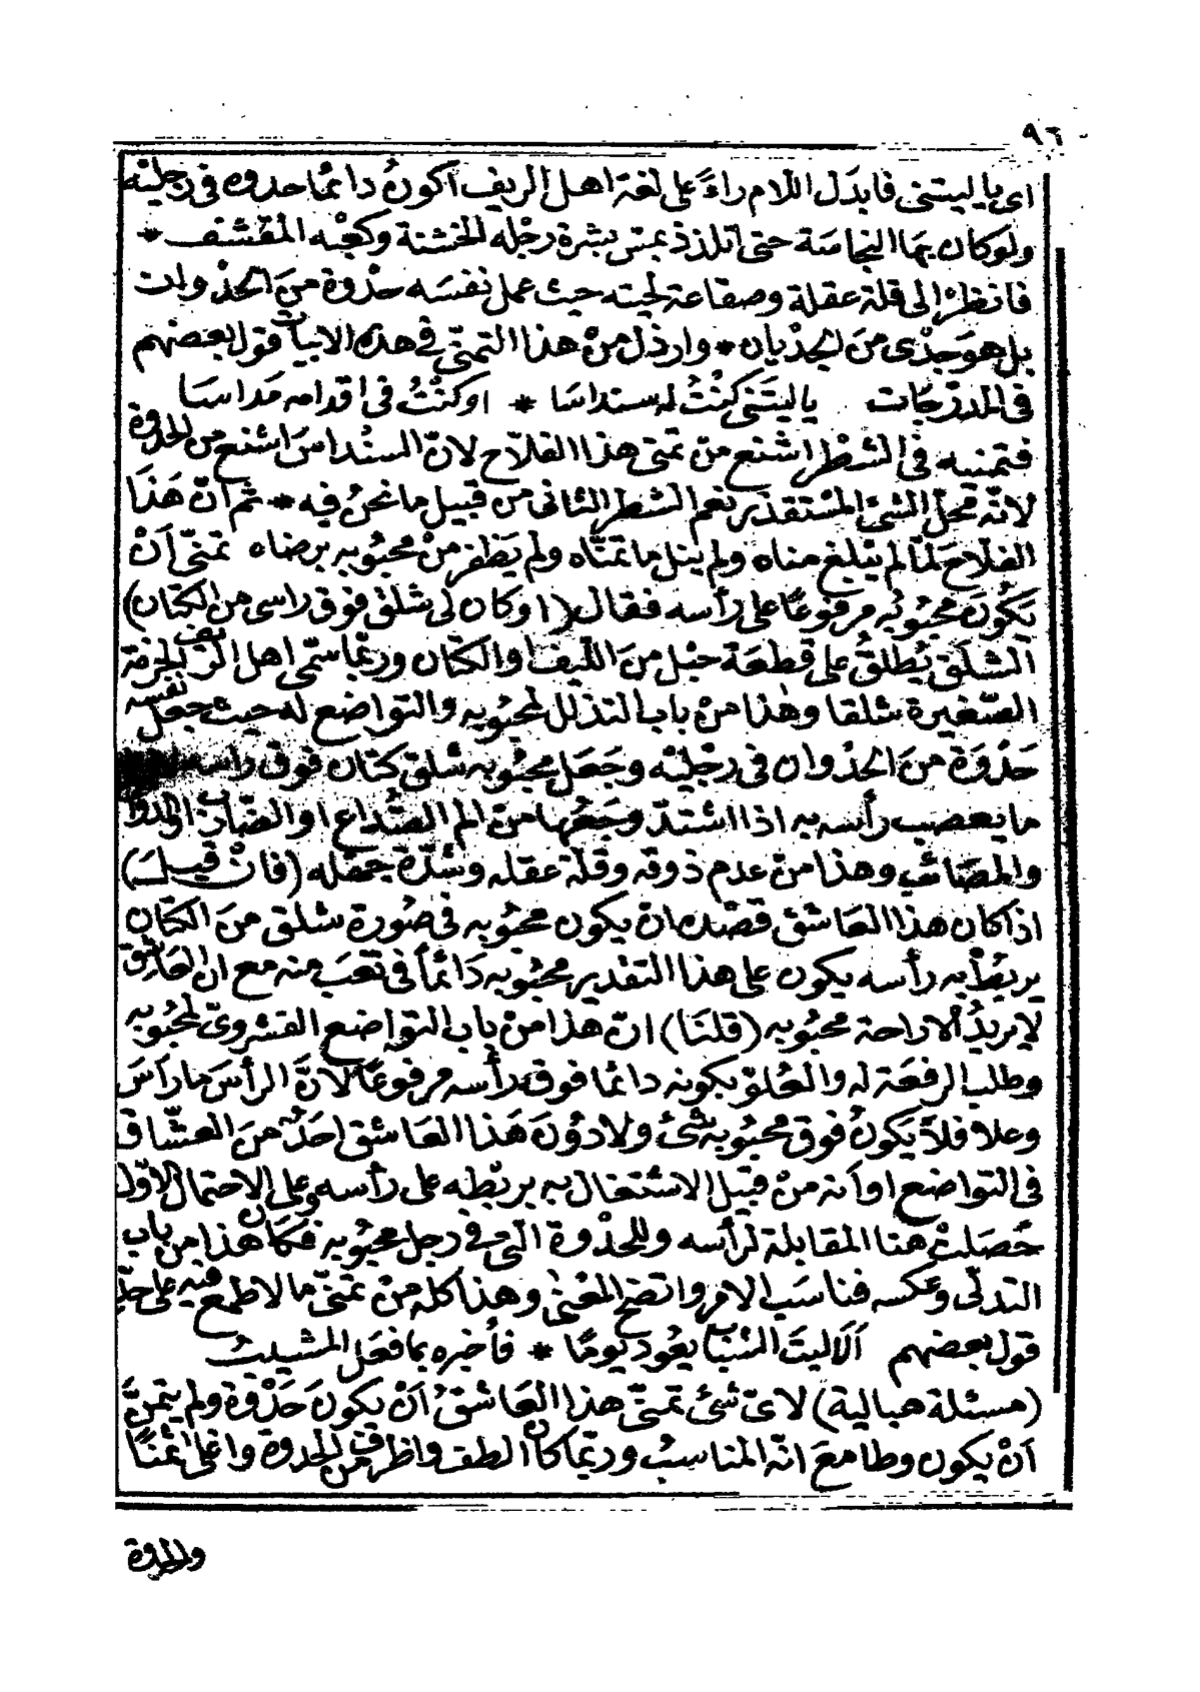 ٩٦
اى ياليتنى فابدَل اللام راءً على لغة اهل الريف اكونُ دائمًا حدوه فى رجليْه
ولوكان بها النجاسة حتى اتلذذ بمسّ بشرة رجْله الخشنة وكعْبه المقشف *
فانظرْ الى قلة عقلة وصقاعة لحيته حيث عمل نفسَه حذْوة منَ الحذْوات
بل هوَجدْى منَ الجدْيان * وارذل منْ هذا التمنّى فى هذه الابيات قول بعضهم
فى المدرّجات ياليتَنى كنْتُ له سنداسَا * اوكنْتُ فى اقدامه مَداسَا
فتمنيه فى الشطْر اشنع منْ تمنى هذا الفلاّح لانّ السنْداسَ اشنع من الحدْوة
لانّه محلّ الشئ المسْتقذر نعم الشطر الثانى من قبيل مانحنُ فيه * ثم انّ هَذا
الفلاّحَ لمّا لم يبْلغ مناه ولم ينل ماتمنّاه ولم يَظفر منْ محبُوبه برضاه تمنّى أنْ
يَكونَ محبُوبُه مرفوعًا على رأسه فقال (اوكان لى شلق فوق راسى من الكتان)
الشلق يُطلقُ على قطعَة حبْل منَ اللّيف اوالكتّان وربّماسمّى اهل الريف الحزمة
الصّغيرة شلقا وهٰذا منْ باب التذلل لمحبُوبه والتواضع له حيث جعل نفسه
حَذْوَة منَ الحذْوان فى رجْليْه وجَعَل محبُوبه شلق كتّان فوق راسه
مايعصب رأسه به اذا اشتدّ وجَعُها منْ الم الصّداع اوالضّارب
والمصَائب وهٰذا منْ عدم ذوقه وقلّة عقله وشدّة جهْله (فانْ قيلَ)
اذا كان هذا العَاشق قصْده انْ يكون محبُوبه فى صُورة شلق منَ الكتّان
يربطُ به رأسه يكون على هذا التقدير محبُوبه دَائمًا فى تعَب منه مع انّ العَاشق
لايريدُ الاراحة محبُوبه (قلنَا) انّ هذا منْ باب التواضع القشروىّ لمحبُوبه
وطلب الرفعَة له والعُلوّ بكونه دائما فوق رأسه مرفوعًا لانّ الرأسَ مارَاسَ
وعلا فلاَ يَكونُ فوق محبُوبه شئ ولادُونَ هَذا العَاشق احَدٌ منَ العشّاق
فى التواضع اوأنه منْ قبَيل الاشتغال به بربْطه على رأسه وعلى الاحتمال الاوّل
حَصَلتْ هنا المقابلة لرأسه وللحذْوة الّتى فى رجل محبُوبه فكانَ هذا من باب
التدلّى وعكسه فناسَب الامر واتضح المعْنىٰ وهذا كله منْ تمنّى مالاطمع فيه على حدّ
قول بعضهم ألاَليتَ الشبَابَ يعُود يَومًا * فأُخبره بما فعَل المشيبُ
(مسئلة هبالية) لاىّ شئ تمنّى هذا العَاشقُ أنْ يكونَ حَذْوة ولم يتمنَّ
أنْ يكون وطا معَ انّه المناسبُ وربّما كانَ الطف واظرف من الحدوة واغلى ثمنًا
والحدوة